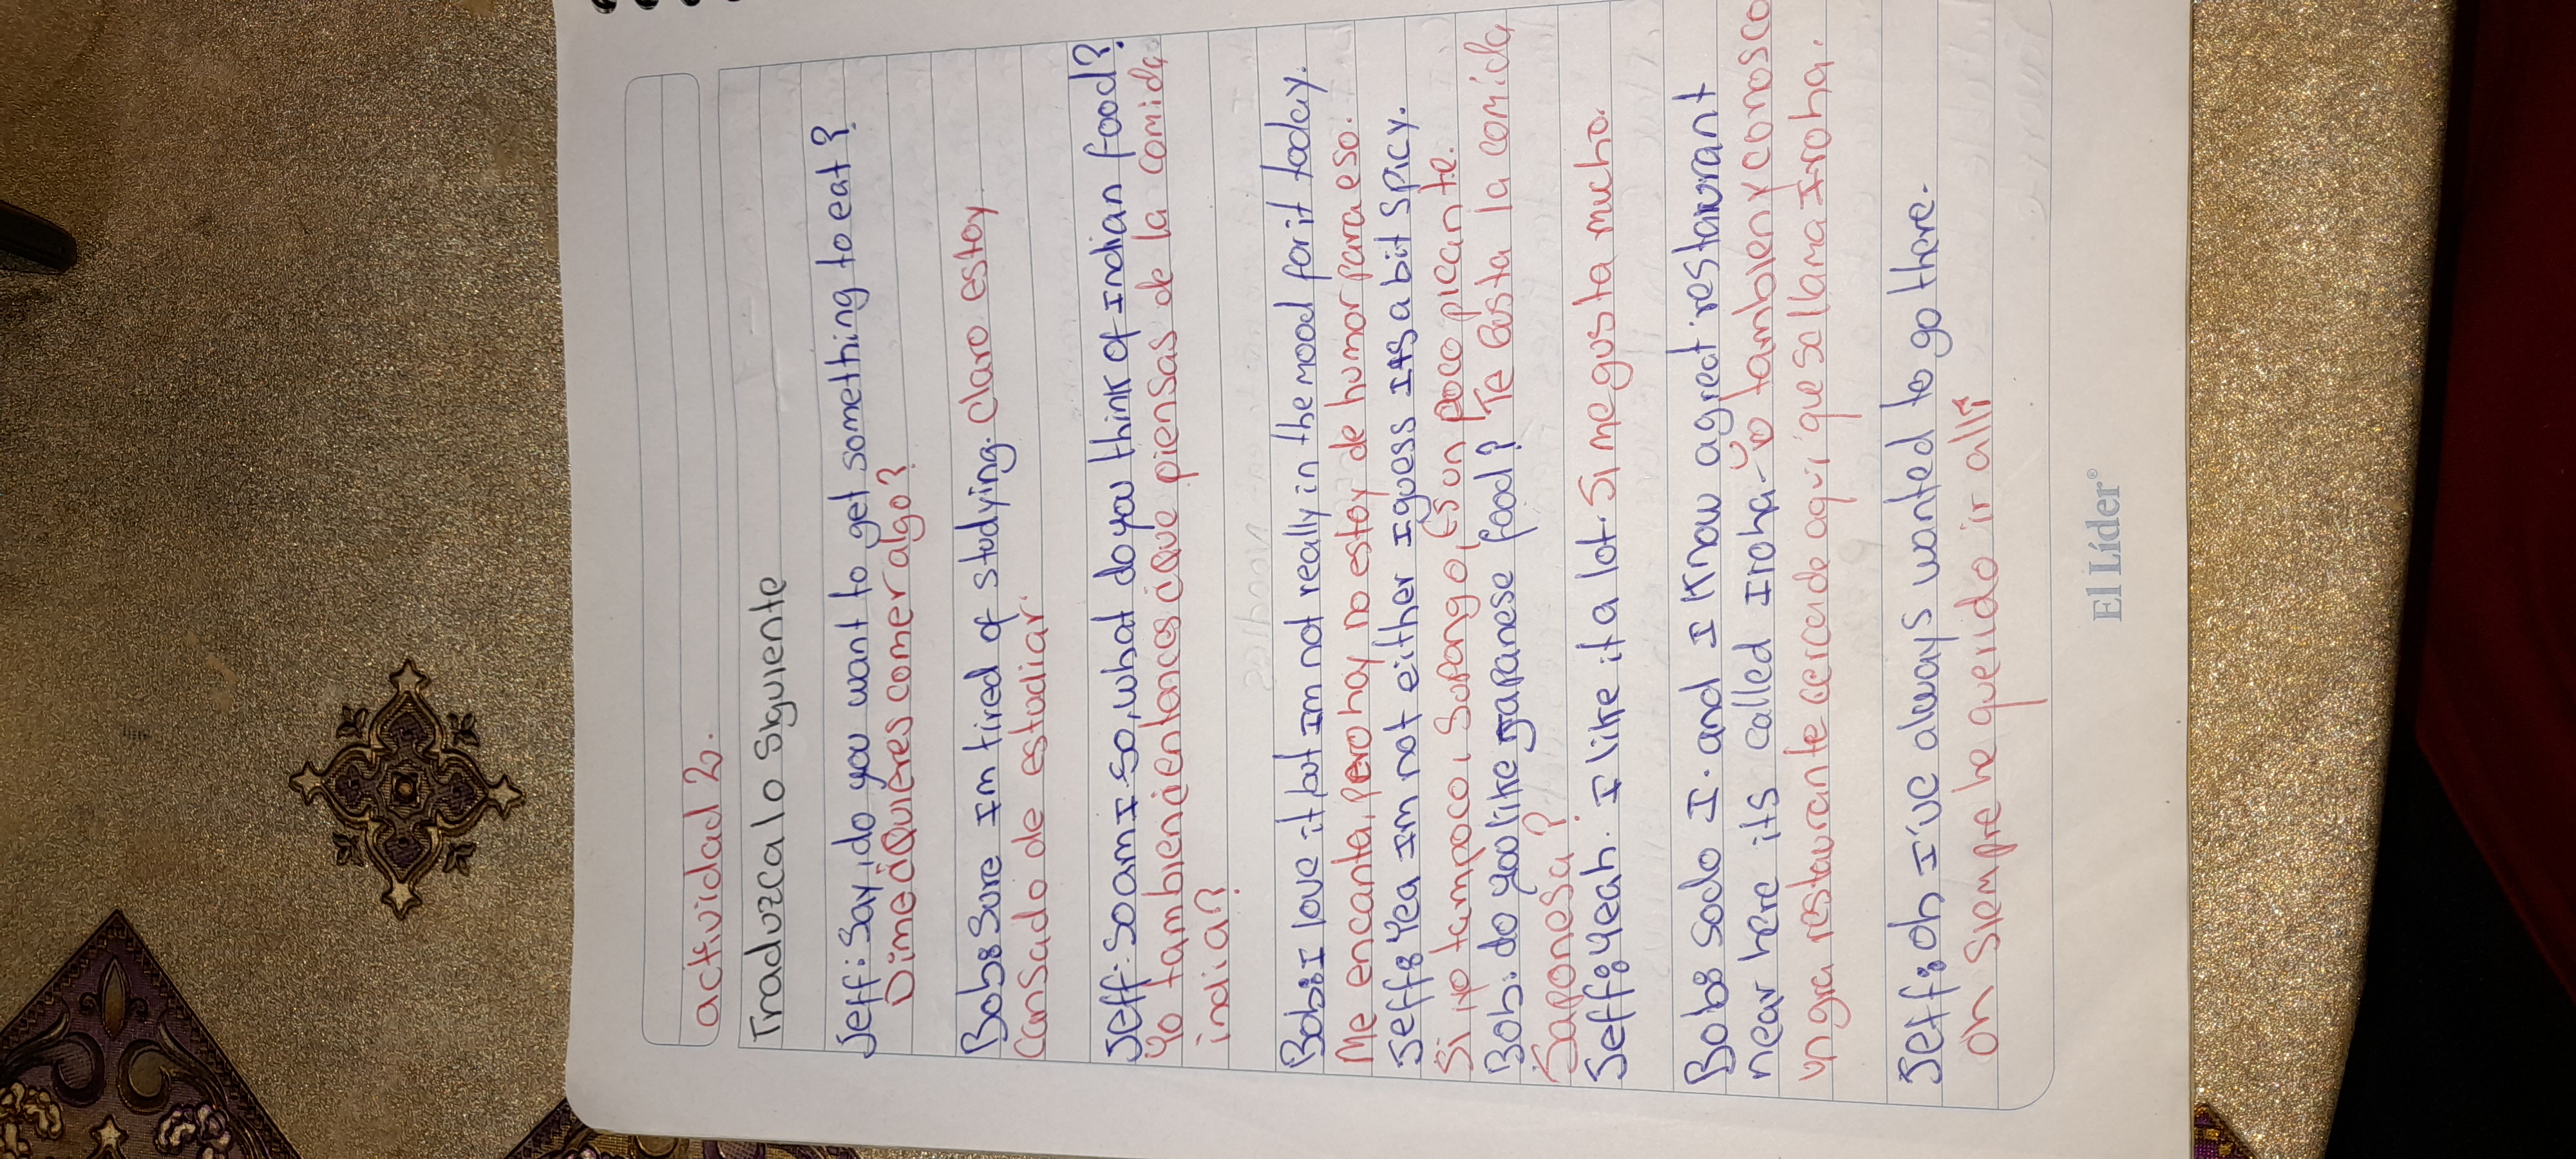 actividad 2.
Traduzca lo siguiente
Jeff: Say, do you want to get something to eat?
Dime ¿Quieres comer algo?
Bob: Sure Im tired of studying. Claro estoy
Cansado de estudiar.
Jeff: So am I. So, what do you think of Indian food?
Yo tambien ¿entonces ¿que piensas de la comida
india?
Bob: I love it, but Im not really in the mood for it today.
Me encanta, pero hoy no estoy de humor para eso.
Jeff: Yea Im not either I guess Its a bit spicy.
Si yo tampoco, Supongo, Es un poco picante.
Bob: do you like japanese food? Te Gusta la comida
Japonesa?
Jeff: Yeah. I like it a lot. Si me gusta mucho.
Bob: So do I. and I know a great restaurant
near here its called Iroha. Yo tambien y conosco
un gra restaurante cerca de aqui que se llama Iroha.
Jeff: oh I've always wanted to go there.
oh siempre he querido ir allí
El Líder®